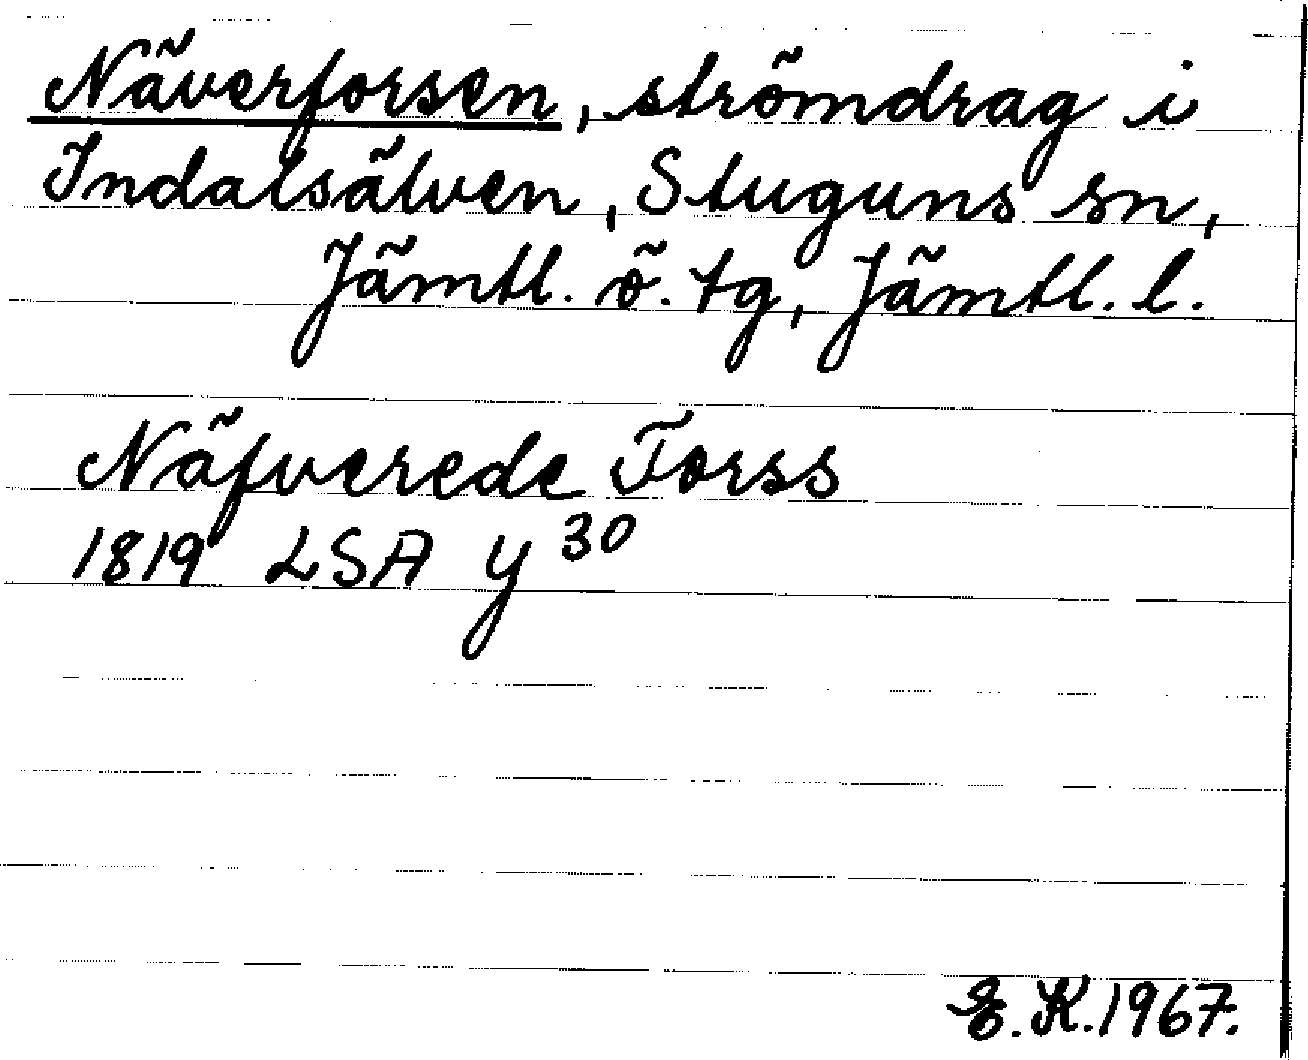 Näverforsen, strömdrag i
Indalsälven, Stuguns sn,
Jämtl. ö. tg, Jämtl. l.
Näfverede Forss
1819 LSA y 30
E.K. 1967.